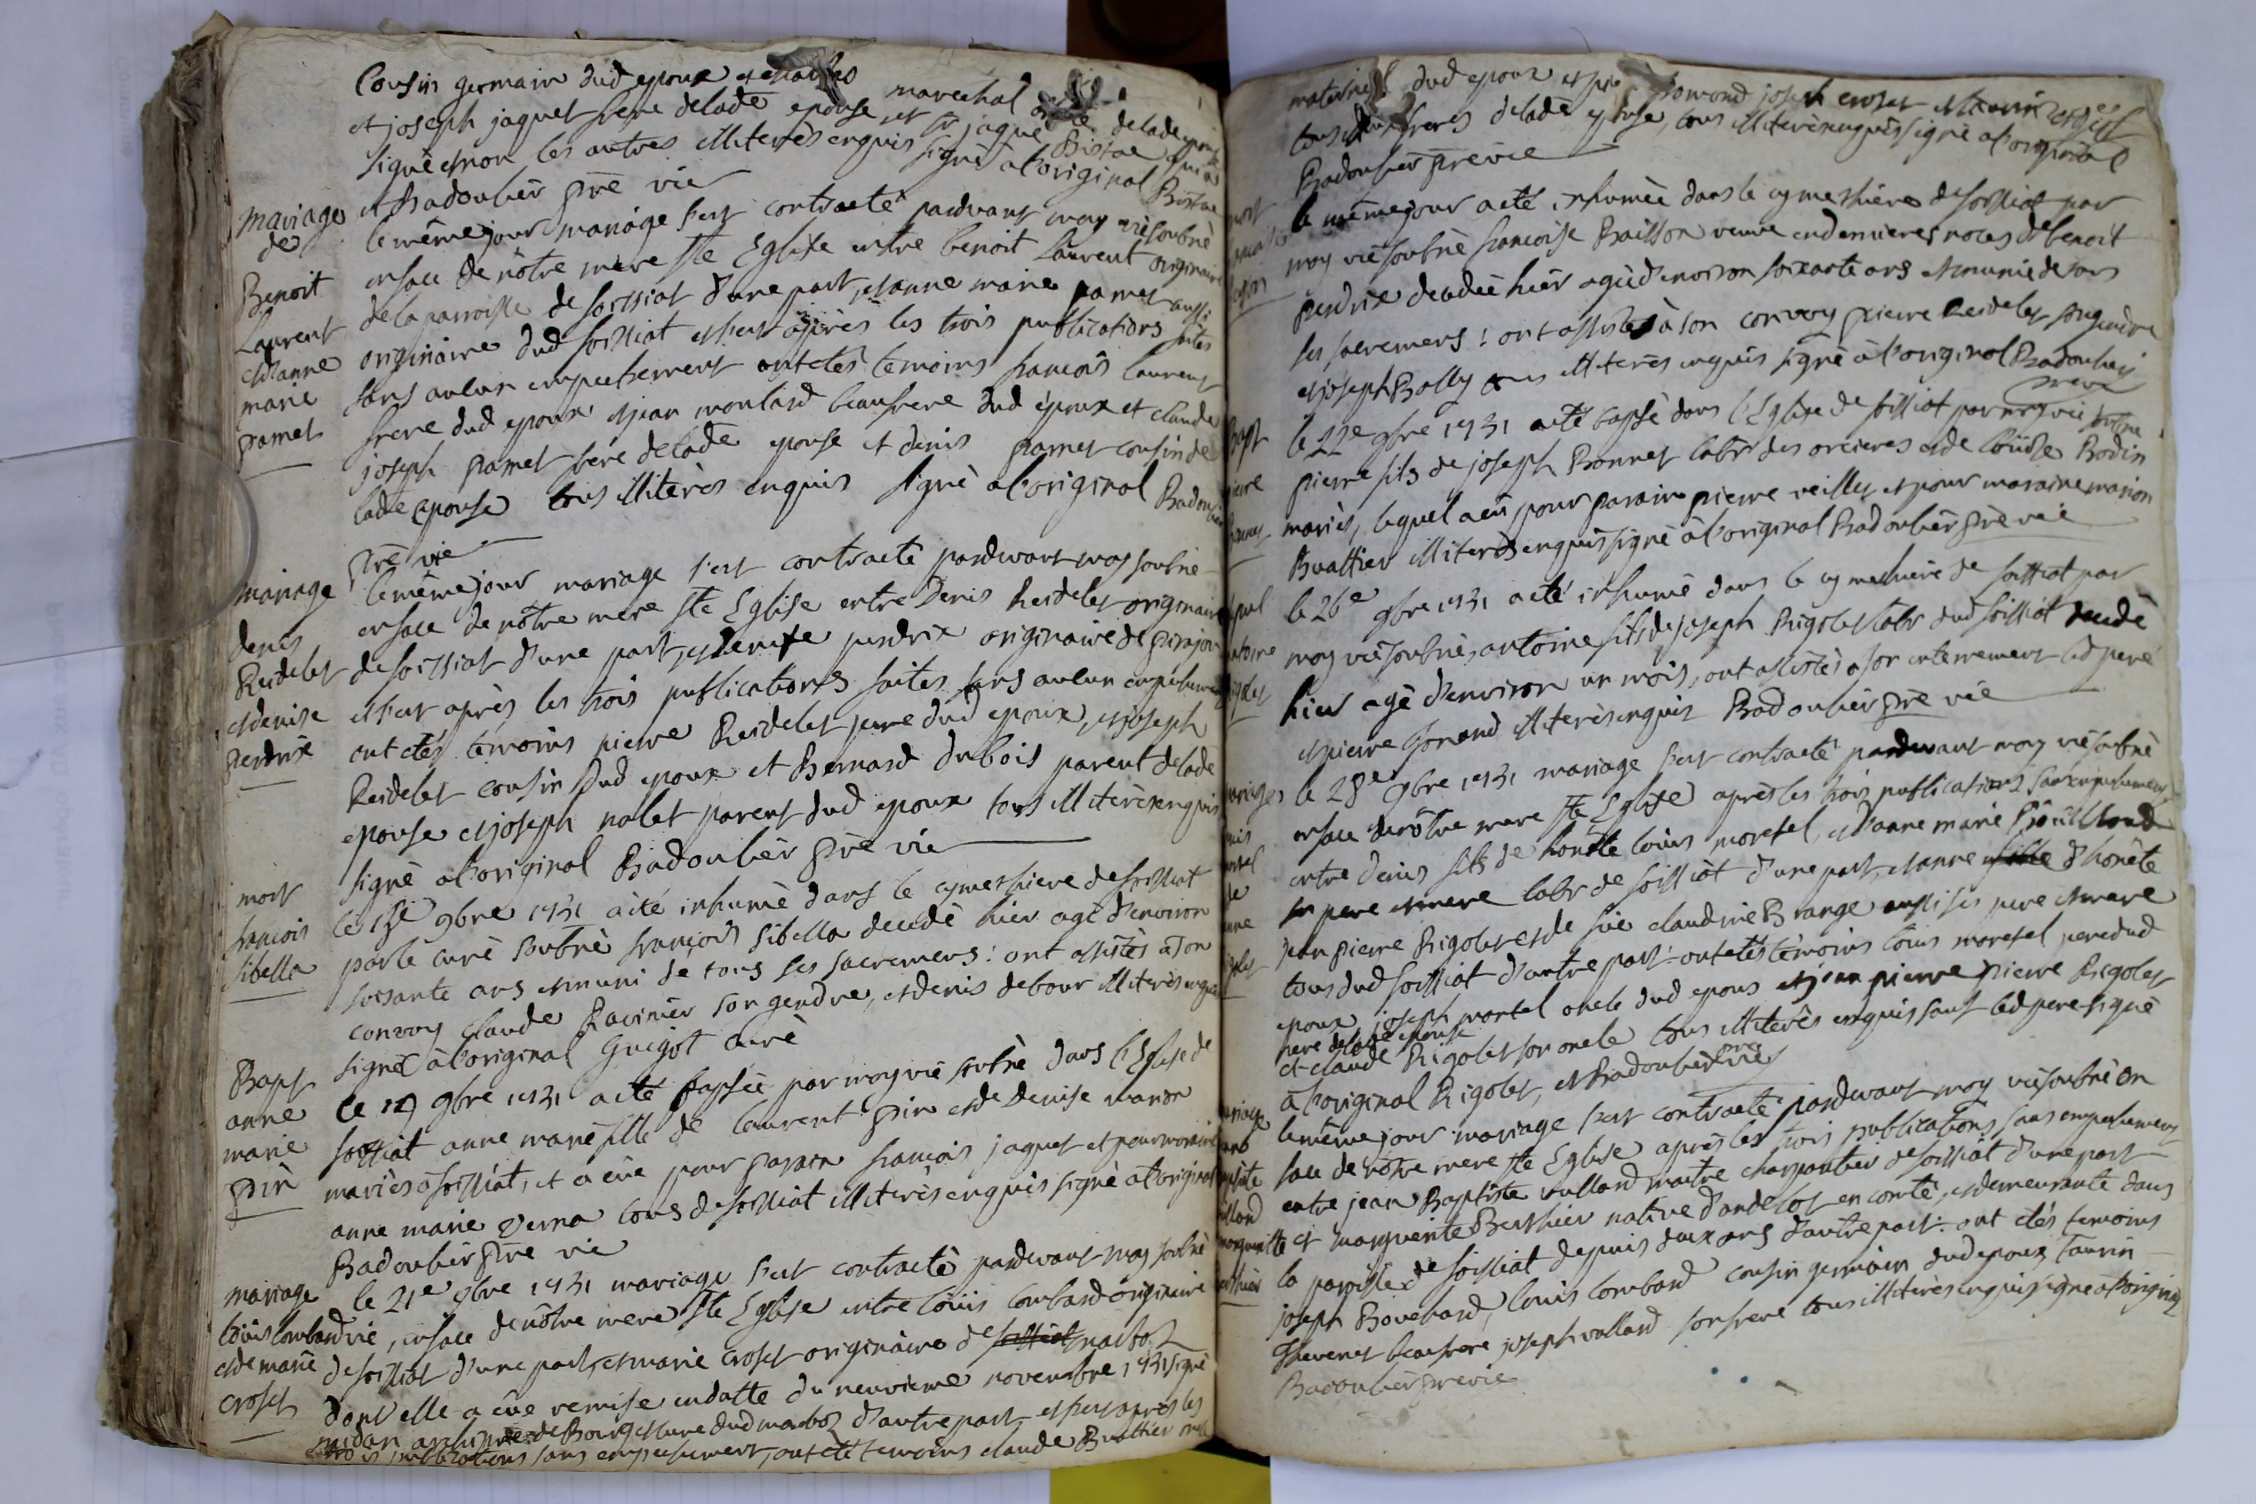 Cousin germain dud epoux et
et joseph jaquet frere de lade epouse marechal de lade epouse
signé et non les autres illiterès enquis et sr jaque Bistac qui a
et Badoulier ptre vic signé à l'original Bistac
mariage
de
Benoit
Laurent
et d'anne
marie
pamet
le même jour mariage s'est contracté pardvant moy vic soubné
en face de nôtre mere Ste Eglise entre benoit Laurent originaire
de la parroisse de soissiat d'une part, et anne marie pamet aussi
originaire dud soissiat et s'est après les trois publications faites
sans aucun empechement ont etés temoins francois laurent
frere dud epoux, et jean moulard beaufrere dud époux et claude
joseph pamet frere de lade epouse et denis pamet cousin de
lade epouse tous illiterès enquis signé a l'original Badoulier
ptre vic
mariage
denis
Reidelet
et denise
perdrix
le même jour mariage s'est contracté pardevant moy soubné
en face de nôtre mere Ste Eglise entre Denis Reidelet originaire
de soissiat d'une part, et denise perdrix originaire de
et s'est après les trois publications faites sans aucun empechement
ont etés temoins pierre Reidelet pere dud epoux, et joseph
Reidelet cousin dud epoux et Bernard dubois parent de lade
epouse et joseph nalet parent dud epoux tous illiterès enquis
signé a l'original Badoulier ptre vic
mort
francois
sibella
le 9bre 1731 a été inhumé dans le cymethiere de soissiat
par le curé soubné françois sibella decedé hier agé d'environ
soixante ans et muni de tous ses sacremens : ont assistés à son
convoy claude Ravinier son gendre, et denis debour illiterès enquis
signé à l'original Guigot curé
Bapt
anne
marie
pin
le 19 9bre 1731 a eté bapsée par moy vic soubné dans l'Eglise de
soissiat anne marie fille de laurent pin et de Denise manon
mariés à soissiat, et a eüe pour parain francois jaquet et pour maraine
anne marie verna tous de soissiat illiterès enquis signé a l'original
Badoulier ptre vic
mariage
loüis lombard
et de marie
croset
le 21e 9bre 1731 mariage s'est contracté pardevant moy soubné
vic, en face de nôtre mere Ste Eglise entre loüis lombard originaire
de soissiat d'une part, et marie croset originaire de soissiat marboz
dont elle a eüe remise en datte du neuvieme novembre 1731 signé
midan archiptre de Bourg et curé dud marboz d'autre part et s'est après les
trois publications sans empechement, ont eté temoins claude Buattier oncle
maternel dud epoux et joseph croset et
tous deux freres de lade epouse, tous illiterès enquis signé a l'original
Badoulier ptre vic
le même jour a eté inhumée dans le cymethiere de soissiat par
moy vic soubné francoise Baisson veuve en dernieres noces de benoit
perdrix decedée hier agée d'environ soixante ans et munie de tous
ses sacremens : ont assistés à son convoy pierre Reidelet son gendre
et joseph Bolly tous illiterès enquis signé à l'original Badoulier
ptre vic
Bapt
pierre
bonnet
le 22e 9bre 1731 a eté bapsé dans l'Eglise de soissiat par moy vic soubné
pierre fils de joseph Bonnet labr des orcieres et de loüise Bodin
mariés, lequel a eü pour parain pierre veillet et pour maraine marion
Buattier illiterés enquis signé à l'original Badoulier ptre vic
le 26e 9bre 1731 a eté inhumé dans le cymethiere de soissiat par
moy vic soubné, antoine fils de joseph Rigolet labr dud soissiat decedé
hier agé d'environ un mois, ont assistés a son enterrement led pere
et pierre gonand illiterès enquis Badoulier ptre vic
le 28e 9bre 1731 mariage s'est contracté pardevant moy vic soubné
en face de nôtre mere Ste Eglise après les trois publications sans empechement
entre denis fils de honête loüis morel et d'anne marie Boüillond
ses pere et mere labr de soissiat d'une part, et anne fille d'honête
jean pierre Rigolet et de sie claudine Brange aussi ses pere et mere
tous dud soissiat d'autre part : ont etés témoins loüis morel pere dud
epoux, joseph morel oncle dud epoux et jean pierre pierre Rigolet
pere de lade epouse
et claude Rigolet son oncle tous illiterès enquis sauf led pere signé
à l'original Rigolet, et Badoulier ptre vic
le même jour mariage s'est contracté pardevant moy vic soubné en
face de nôtre mere Ste Eglise après les trois publications sans empechement
entre jean Baptiste vulland maitre charpentier de soissiat d'une part
et marguerite Berthier native d'andelot en comté, et demeurante dans
la paroisse de soissiat depuis deux ans d'autre part : ont etés temoins
joseph Bouchard, louis lombard cousin germain dud epoux taurin
thevenet beaufrere joseph vulland son frere tous illiterès enquis signé a l'original
Badoulier ptre vic